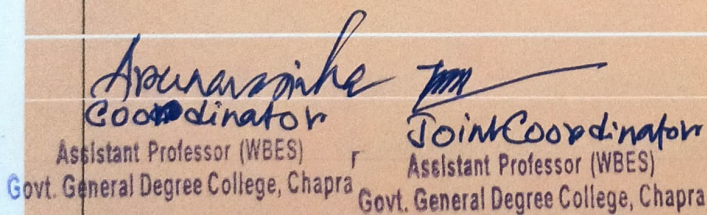 Coordinator
Assistant Professor (WBES)
Govt. General Degree College, Chapra
r
Joint Coordinator
Assistant Professor (WBES)
Govt. General Degree College, Chapra